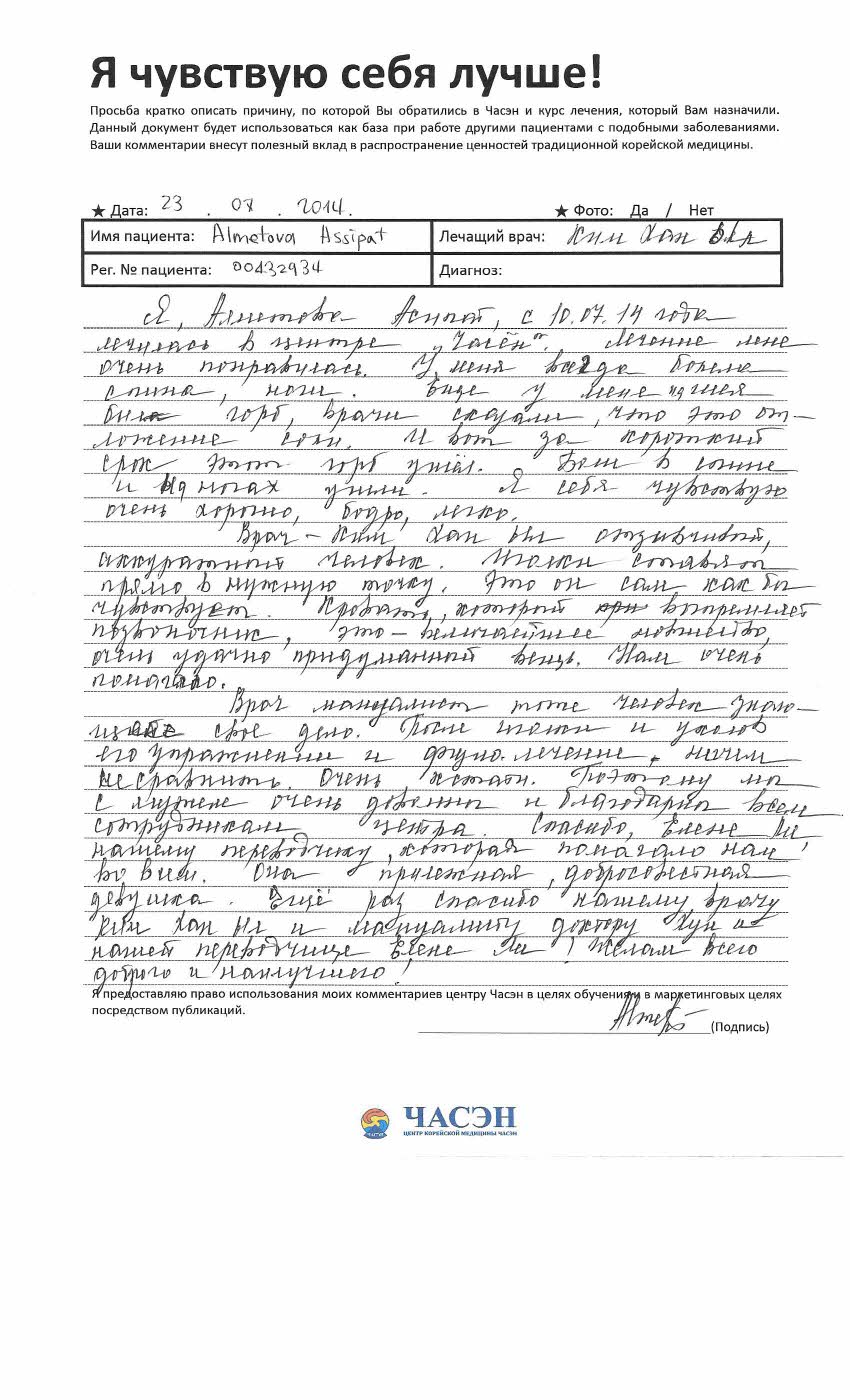 Я чувствую себя лучше!
Просьба кратко описать причину, по которой Вы обратились в Часэн и курс лечения, который Вам назначили.
Данный документ будет использоваться как база при работе другими пациентами с подобными заболеваниями.
Ваши комментарии внесут полезный вклад в распространение ценностей традиционной корейской медицины.
★ Дата: 23 . 07 . 2014. ★ Фото: Да / Нет
Имя пациента: Almetova Assipat Лечащий врач: Ким Хан
Рег. № пациента: 00432934 Диагноз:
Я, Алметова Асипат, с 10.07.14 года
лечилась в центре „Часён". Лечение мне
очень понравилась. У меня всегда болела
спина, ноги. Еще у меня на шея
была горб, врачи сказали, что это от-
ложение соли. И вот за короткий
срок этот горб ушёл. Боли в спине
и на ногах ушли. Я себя чувствую
очень хорошо, бодро, легко.
Врач - Ким Хан Ил отзивчивый,
аккуратный человек. Иголки ставят
прямо в нужную точку. Это он сам как бы
чувствует. Кровать, который выпремляет
позвоночник, это - величайшее
очень удачно придуманной вещь. Нам очень
помагало.
Врач мануалист тоже человек знаю-
щий свое дело. После иголки и уколов
его упражнении и физио. лечение, ничем
не сравнить. Очень кстати. Поэтому мы
с мужем очень довольны и благодарны всем
сотрудникам центра. Спасибо, Елене Ли,
нашему переводчику, которая помагало нам
во всем. Она прилежная, добросовестная
девушка. Ещё раз спасибо нашему врачу
Ким Хан Ил и мануалисту доктору Хун и
нашей переводчице Елене Ли! Желам всего
доброго и наилучшего!
Я предоставляю право использования моих комментариев центру Часэн в целях обучения и в маркетинговых целях
посредством публикаций.
(Подпись)
ЧАСЭН
ЦЕНТР КОРЕЙСКОЙ МЕДИЦИНЫ ЧАСЭН